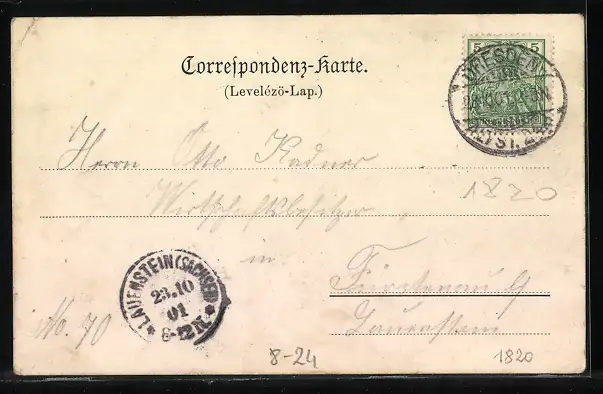 Correspondenz-Karte.
(Levelézö-Lap.)
5 5
DRESDEN
ALTST. 24
Herrn Otto Kadner
Wirtschaftsbesitzer
in
Fürstenau
Lauenstein
No. 70
1820
LAUENSTEIN (SACHSEN)
23.10
01
6-12 N.
8-24
1820